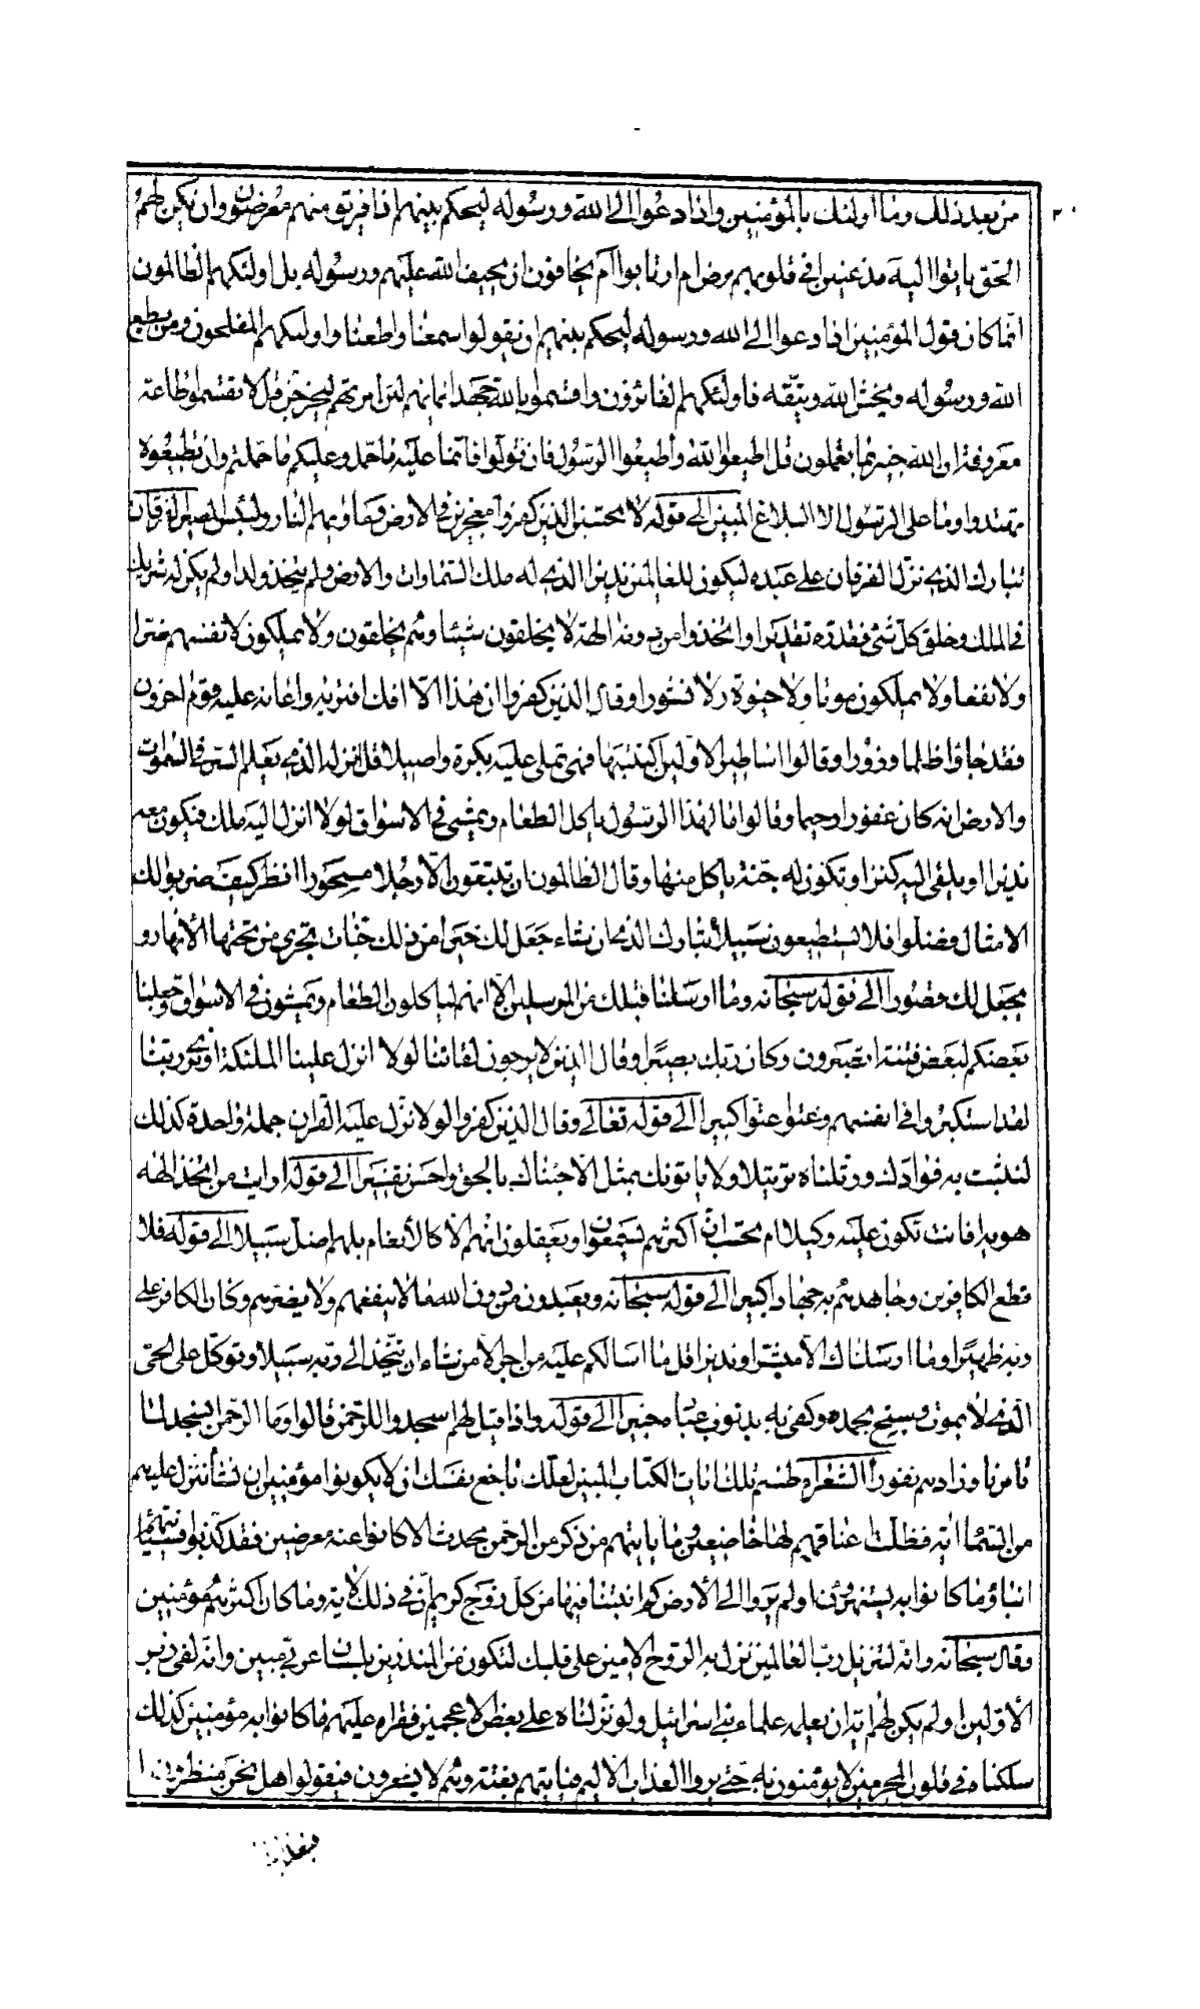 من بعد ذلك وما اولئك بالمؤمنين واذا دعوا الى الله ورسوله ليحكم بينهم اذا فريق منهم معرضون وان يكن لهم
الحق ياتوا اليه مذعنين افى قلوبهم مرض ام ارتابوا ام يخافون ان يحيف الله عليهم ورسوله بل اولئك هم الظالمون
انما كان قول المؤمنين اذا دعوا الى الله ورسوله ليحكم بينهم ان يقولوا سمعنا واطعنا واولئك هم المفلحون ومن يطع
الله ورسوله ويخش الله ويتقه فاولئك هم الفائزون واقسموا بالله جهد ايمانهم لئن امرتهم ليخرجن قل لا تقسموا طاعة
معروفة ان الله خبير بما تعملون قل اطيعوا الله واطيعوا الرسول فان تولوا فانما عليه ما حمل وعليكم ما حملتم وان تطيعوه
تهتدوا وما على الرسول الا البلاغ المبين الى قوله لا تحسبن الذين كفروا معجزين فى الارض وماويهم النار ولبئس المصير الفرقان
تبارك الذى نزل الفرقان على عبده ليكون للعالمين نذيرا الذى له ملك السماوات والارض ولم يتخذ ولدا ولم يكن له شريك
فى الملك وخلق كل شئ فقدره تقديرا واتخذوا من دونه الهة لا يخلقون شيئا وهم يخلقون ولا يملكون لانفسهم ضرا
ولا نفعا ولا يملكون موتا ولا حيوة ولا نشورا وقال الذين كفروا ان هذا الا افك افتريه واعانه عليه قوم اخرون
فقد جاؤا ظلما وزورا وقالوا اساطير الاولين اكتتبها فهى تملى عليه بكرة واصيلا قل انزله الذى يعلم السر فى السموات
والارض انه كان غفورا رحيما وقالوا ما لهذا الرسول ياكل الطعام ويمشى فى الاسواق لولا انزل اليه ملك فيكون معه
نذيرا او يلقى اليه كنز او تكون له جنة ياكل منها وقال الظالمون ان تتبعون الا رجلا مسحورا انظر كيف ضربوا لك
الامثال فضلوا فلا يستطيعون سبيلا تبارك الذى ان شاء جعل لك خيرا من ذلك جنات تجرى من تحتها الانهار و
يجعل لك قصورا الى قوله سبحانه وما ارسلنا قبلك من المرسلين الا انهم لياكلون الطعام ويمشون فى الاسواق وجعلنا
بعضكم لبعض فتنة اتصبرون وكان ربك بصيرا وقال الذين لا يرجون لقائنا لولا انزل علينا الملئكة او نرى ربنا
لقد استكبروا فى انفسهم وعتوا عتوا كبيرا الى قوله تعالى وقال الذين كفروا لولا نزل عليه القران جملة واحدة كذلك
لنثبت به فؤادك ورتلناه ترتيلا ولا ياتونك بمثل الا جئناك بالحق واحسن تفسيرا الى قوله ارايت من اتخذ الهه
هويه افانت تكون عليه وكيلا ام تحسب ان اكثرهم يسمعون او يعقلون ان هم الا كالانعام بل هم اضل سبيلا الى قوله فلا
تطع الكافرين وجاهدهم به جهادا كبيرا الى قوله سبحانه ويعبدون من دون الله ما لا ينفعهم ولا يضرهم وكان الكافر على
ربه ظهيرا وما ارسلناك الا مبشرا ونذيرا قل ما اسالكم عليه من اجر الا من شاء ان يتخذ الى ربه سبيلا وتوكل على الحى
الذى لا يموت وسبح بحمده وكفى به بذنوب عباده خبيرا الى قوله واذا قيل لهم اسجدوا للرحمن قالوا وما الرحمن انسجد لما
تامرنا وزادهم نفورا الشعراء طسم تلك ايات الكتاب المبين لعلك باخع نفسك ان لا يكونوا مؤمنين ان نشا ننزل عليهم
من السماء اية فظلت اعناقهم لها خاضعين وما ياتيهم من ذكر من الرحمن محدث الا كانوا عنه معرضين فقد كذبوا فسياتيهم
انباؤ ما كانوا به يستهزؤن اولم يروا الى الارض كم انبتنا فيها من كل زوج كريم ان فى ذلك لاية وما كان اكثرهم مؤمنين
وقال سبحانه وانه لتنزيل رب العالمين نزل به الروح الامين على قلبك لتكون من المنذرين بلسان عربى مبين وانه لفى زبر
الاولين اولم يكن لهم اية ان يعلمه علماء بنى اسرائيل ولو نزلناه على بعض الاعجمين فقراه عليهم ما كانوا به مؤمنين كذلك
سلكناه فى قلوب المجرمين لا يؤمنون به حتى يروا العذاب الاليم فياتيهم بغتة وهم لا يشعرون فيقولوا هل نحن منظرون